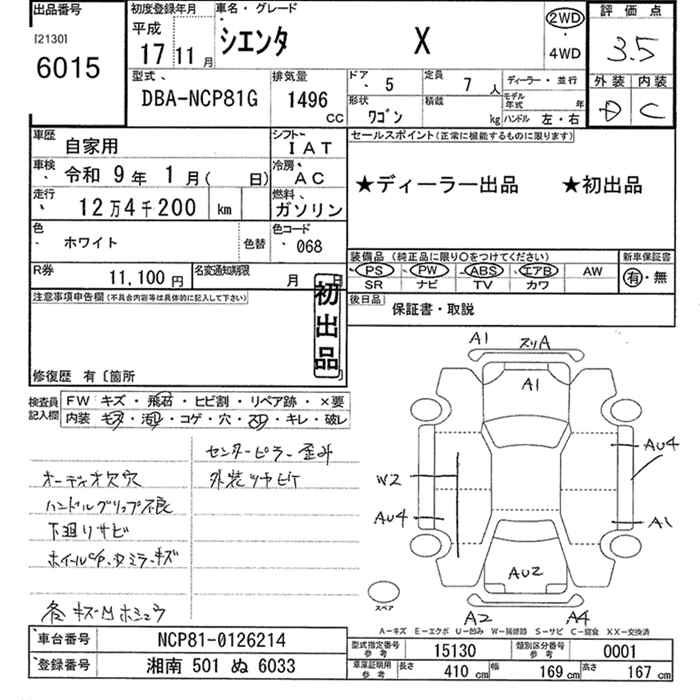 出品番号
[2130]
6015
初度登録年月
平成
17 11月
車名・グレード
シエンタ X
2WD
・
4WD
評価点
3.5
外装 内装
D C
型式
DBA-NCP81G
排気量
1496
cc
ドア
5
定員
7人
ディーラー・並行
形状
ワゴン
積載
kg
モデル年式 年
ハンドル 左・右
車歴
自家用
シフト
IAT
車検
令和 9年 1月( 日)
冷房
AC
走行
12万4千200 km
燃料
ガソリン
色
ホワイト
色替
色コード
068
R券
11,100円
名変通知期限
月 日
セールスポイント(正常に機能するものに限ります)
★ディーラー出品 ★初出品
装備品(純正品に限り〇をつけてください)
新車保証書
PS PW ABS エアB AW
SR ナビ TV カワ
有・無
後日品
保証書・取説
注意事項申告欄(不具合内容等は具体的に記入して下さい)
初出品
修復歴 有〔箇所
検査員記入欄
FW キズ・飛石・ヒビ割・リペア跡・×要
内装 キズ・汚れ・コゲ・穴・スリ・キレ・破レ
センターピラー歪み
オーディオ欠穴
外装ツヤビケ
ハンドルグリップ不良
下廻りサビ
ホイールCP、タミラーキズ
各キズ凹ホシュウ
A1 スリA
A1
AU4
W2
AU4
A1
AU2
スペア
A2 A4
A-キズ E-エクボ U-凹み W-補修跡 S-サビ C-腐食 XX-交換済
車台番号
NCP81-0126214
登録番号
湘南 501 ぬ 6033
型式指定番号
参考
15130
類別区分番号
参考
0001
車庫証明用
参考
長さ
410 cm
幅
169 cm
高さ
167 cm